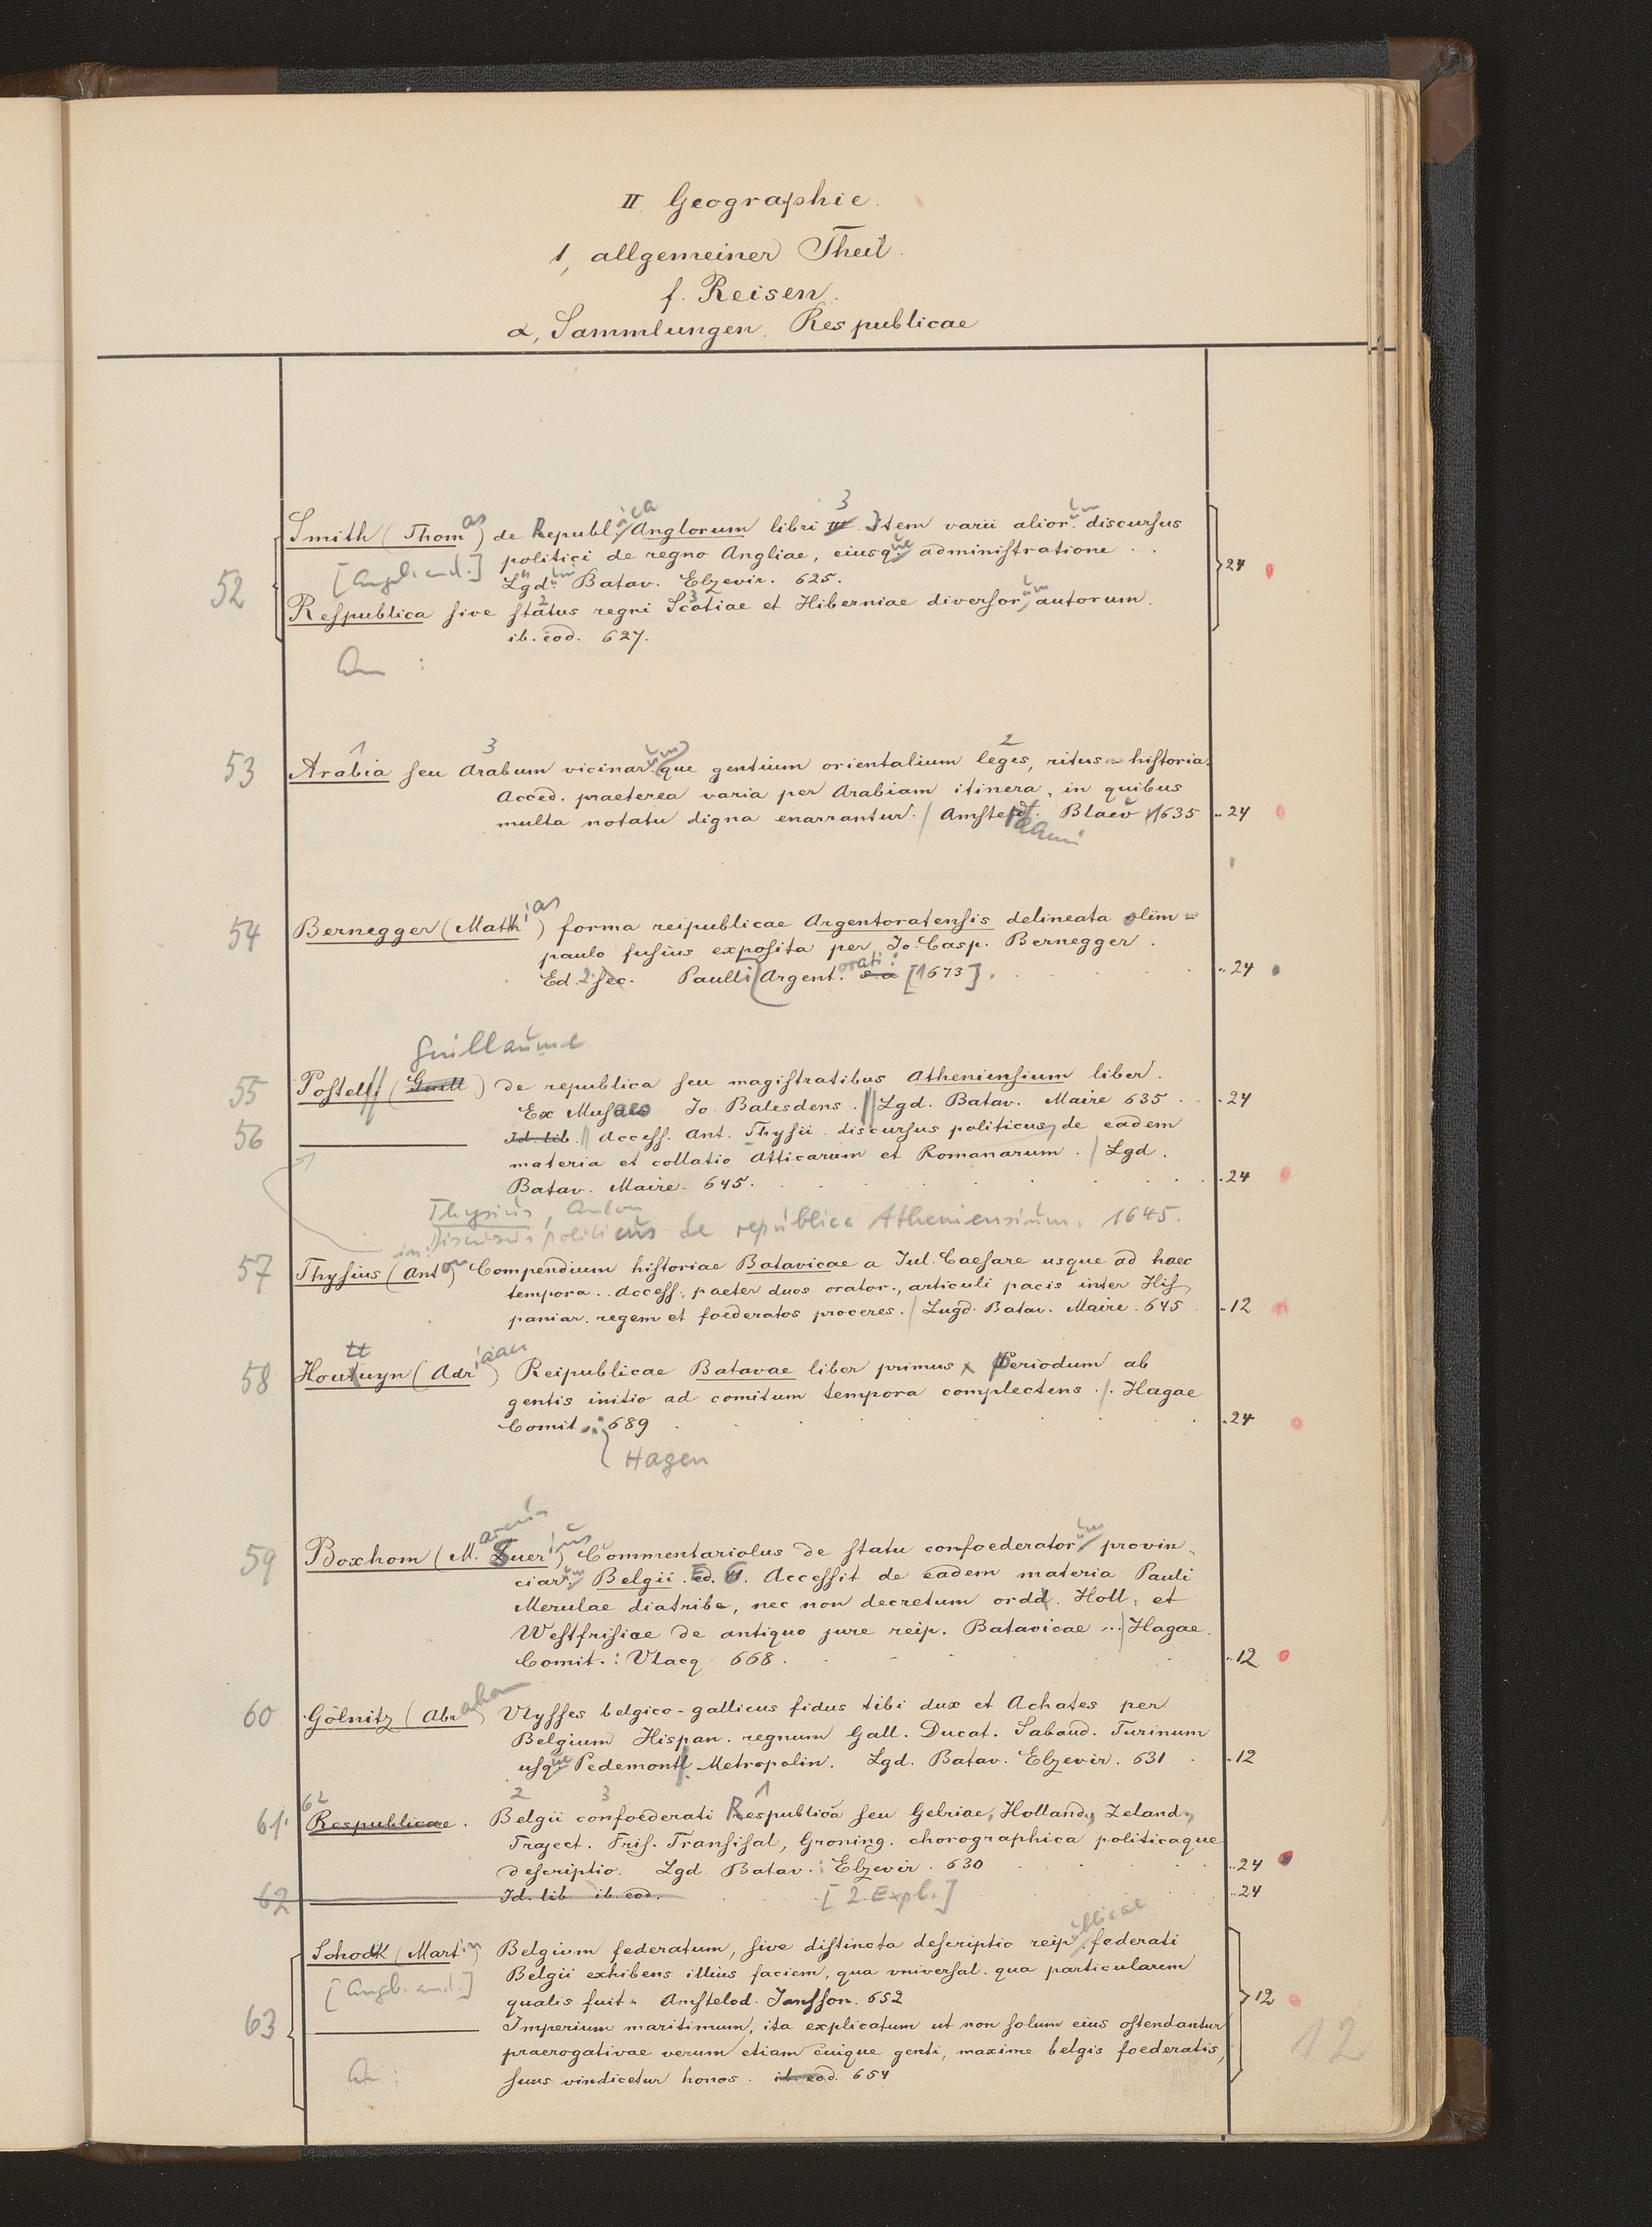 II. Geographie.
1, allgemeiner Theil.
f. Reisen.
α, Sammlungen. Respublicae
3
Smith (Thomas) de Republica Anglorum libri III. Item varii aliorum discursus
politici de regno Angliae, eiusque administratione . .
[Angeb. and.] Lgd. Batav. Elzevir. 625. 24
52
Respublica sive status regni Scotiae et Hiberniae diversorum autorum.
ib. eod. 627.
An :
1 3 2
53 Arabia seu Arabum vicinarumque gentium orientalium leges, ritus historia.
Acced. praeterea varia per Arabiam itinera, in quibus
multa notatu digna enarrantur. / Amstelodami Blaeu 1635 .. 24
54 Bernegger (Matthias) forma reipublicae Argentoratensis delineata olim
paulo fusius exposita per Jo. Casp. Bernegger.
Ed. 2 sec. Paulli Argentorati: s a [1673]. .. 24
Guillaume
55 Postell (Guill) de republica seu magistratibus Atheniensium liber.
Ex Musaeo Jo. Balesdens. // Lgd. Batav. Maire 635 . . . 24
56 ——— Id. lib. // Access. Ant. Thysii discursus politicus de eadem
materia et collatio Atticarum et Romanarum. / Lgd.
Batav. Maire. 645. . 24
Thysius, Anton
in: Discursus politicus de republica Atheniensium. 1645.
57 Thysius (Anton) Compendium historiae Batavicae a Jul. Caesare usque ad haec
tempora. . Access. paeter duos orator., articuli pacis inter His-
paniar. regem et foederatos proceres. / Lugd. Batav. Maire. 645 . 12
tt
58 Houtuyn (Adriaan) Reipublicae Batavae liber primus x Periodum ab
gentis initio ad comitum tempora complectens . / . Hagae
Comit. 689 . 24
Hagen
59 Boxhorn (Marcus Zuerius) Commentariolus de statu confoederatorum provin-
ciarum Belgii. Ed. 6. Accessit de eadem materia Pauli
Merulae diatribe, nec non decretum ordd. Holl. et
Westfrisiae de antiquo jure reip. Batavicae ... / Hagae
Comit. : Vlacq 668. .. 12
60 Gölnitz (Abraham) Ulysses belgico-gallicus fidus tibi dux et Achates per
Belgium Hispan. regnum Gall. Ducat. Sabaud. Turinum
usque Pedemont. Metropolin. Lgd. Batav. Elzevir. 631 . . 12
62 2 3 1
61. Respublicae. Belgii confoederati Respublica seu Gelriae, Holland., Zeland.,
Traject. Fris. Transisal, Groning. chorographica politicaque
descriptio. Lgd. Batav. : Elzevir. 630 .. 24
62 ——— Id. lib ib. eod. [2. Expl.] .. 24
Schock (Martin) Belgium federatum, sive distincta descriptio reipublicae federati
[Angeb. and.] Belgii exhibens illius faciem, qua universal. qua particularem
qualis fuit. Amstelod. Jansson. 652 12
63 ——— Imperium maritimum, ita explicatum ut non solum eius ostendantur
praerogativae verum etiam cuique genti, maxime belgis foederatis,
An : suus vindicetur honos. ib. eod. 654
12